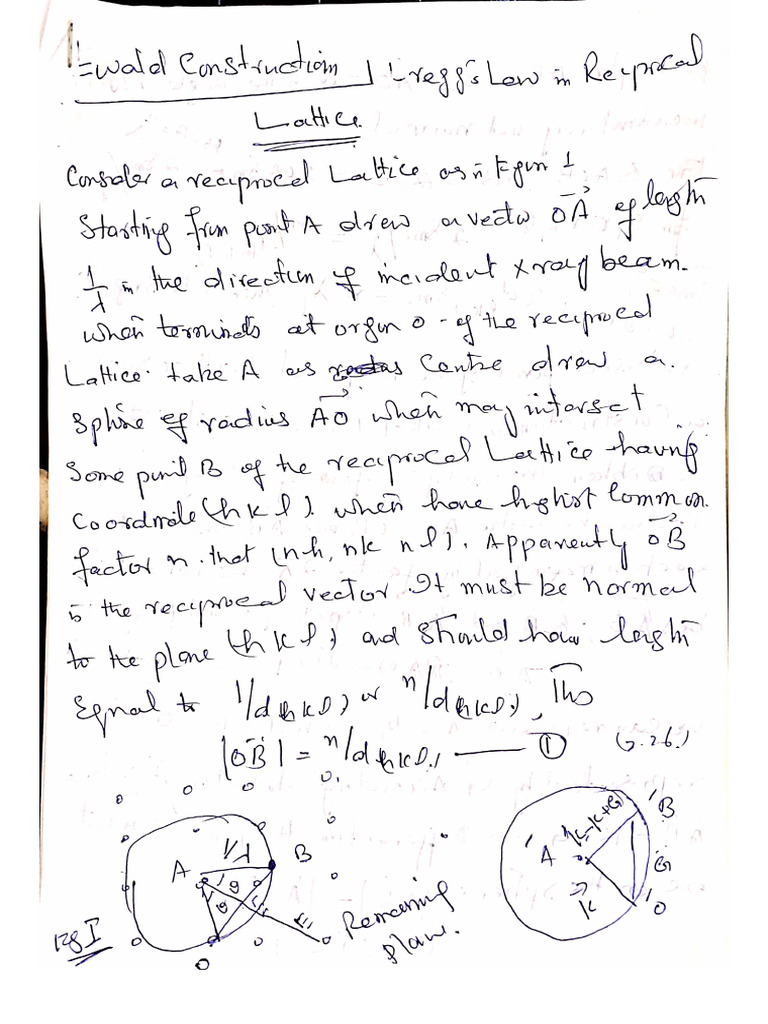 Ewald Construction | Bragg's Law in Reciprocal
Lattice.
Consider a reciprocal Lattice as in figur 1
Starting from point A draw a vector OA of length
1/λ in the direction of incident x ray beam.
when terminats at origin o - of the reciprocal
Lattice. take A as centre draw a
Sphere of radius AO when may intersect
Some point B of the reciprocal Lattice having
Coordinate (h k l). when have highest common
factor n. that (nh, nk nl). Apparently OB
is the reciprocal vector. It must be normal
to the plane (h k l) and should have length
Equal to 1/d(hkl) or n/d(hkl), Ths
|OB| = n/d(hkl) —— ① (2.26.)
A 1/λ B
θ θ
O
Fig I
plane.
A K B
G
K O